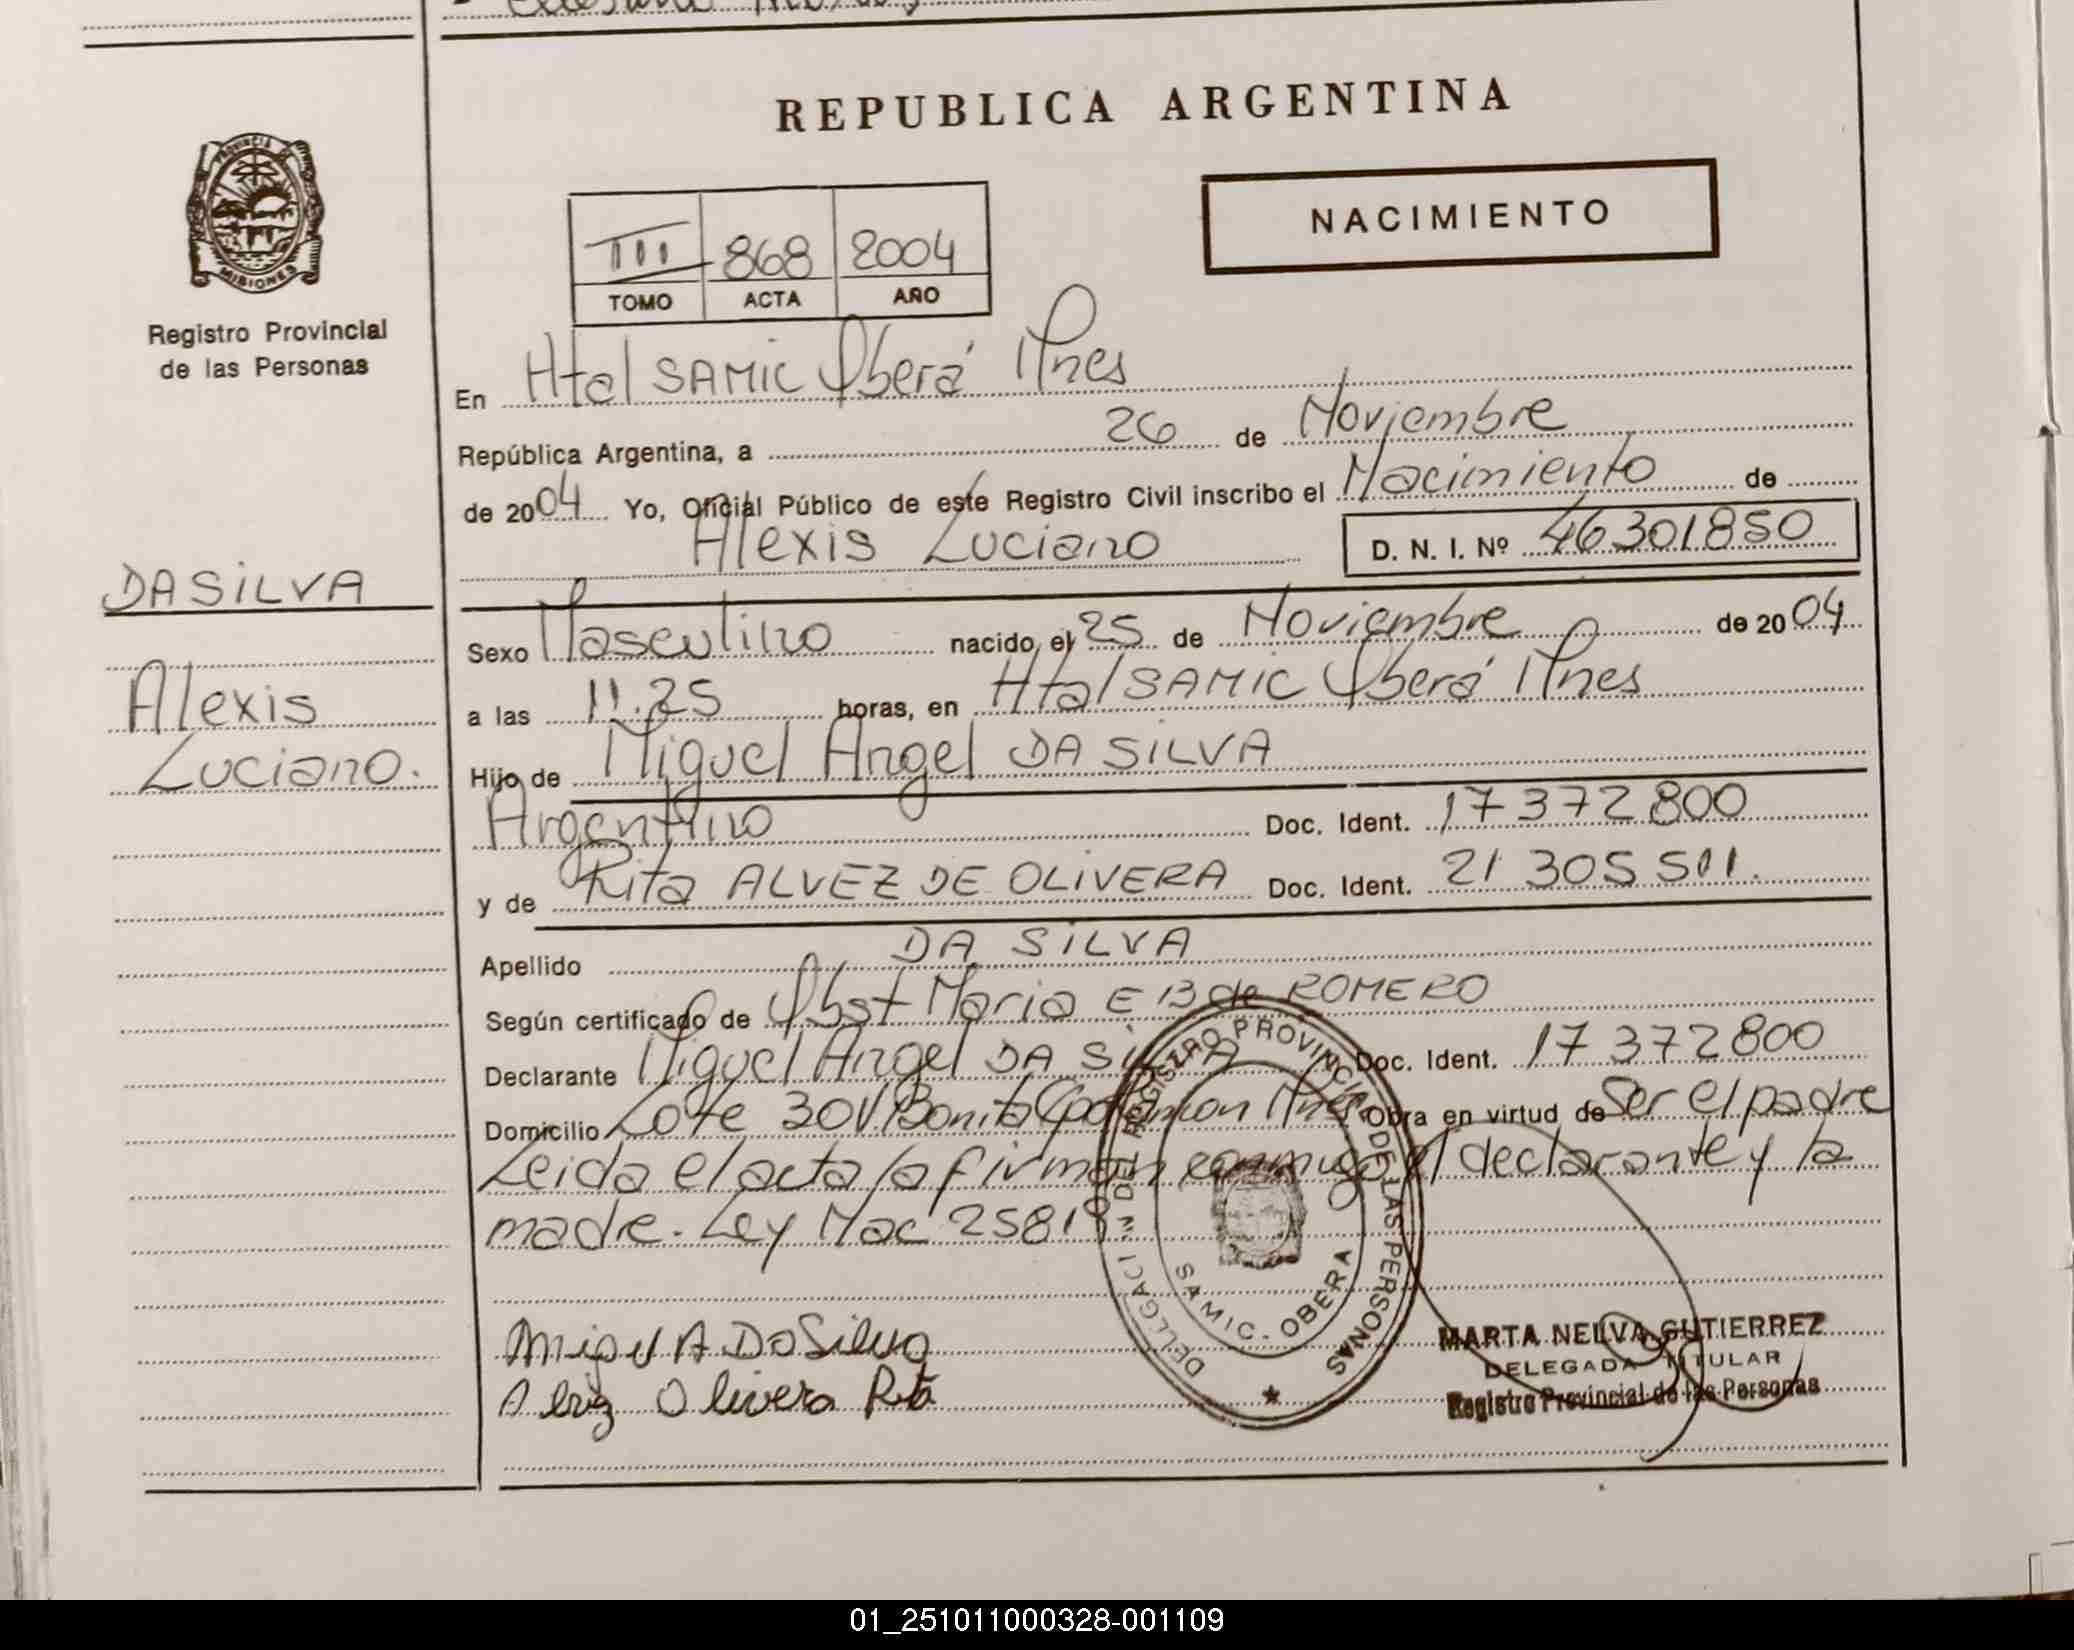 REPUBLICA ARGENTINA
PROVINCIA DE
MISIONES
Registro Provincial
de las Personas
NACIMIENTO
III 868 2004
TOMO ACTA AÑO
En Htal SAMIC Oberá Mnes
República Argentina, a 26 de Noviembre
de 2004 Yo, Oficial Público de este Registro Civil inscribo el Nacimiento de
Alexis Luciano D. N. I. Nº 46301850
DA SILVA
Alexis
Luciano.
Sexo Masculino nacido el 25 de Noviembre de 2004
a las 11.25 horas, en Htal SAMIC Oberá Mnes
Hijo de Miguel Angel DA SILVA
Argentino Doc. Ident. 17 372 800
y de Rita ALVEZ DE OLIVERA Doc. Ident. 21 305 511.
Apellido DA SILVA
Según certificado de Obst Maria E B de ROMERO
Declarante Miguel Angel DA SILVA Doc. Ident. 17 372 800
Domicilio Lote 30 V. Bonita Mnes Obra en virtud de Ser el padre
Leida el acta la firman conmigo el declarante y la
madre. Ley Nac 25819
DELEGACI N DEL REGISTRO PROVINCIAL DE LAS PERSONAS
SAMIC - OBERA
Miguel A Da Silva
Alvez Olivera Rita
MARTA NELVA GUTIERREZ
DELEGADA TITULAR
Registro Provincial de las Personas
01_251011000328-001109